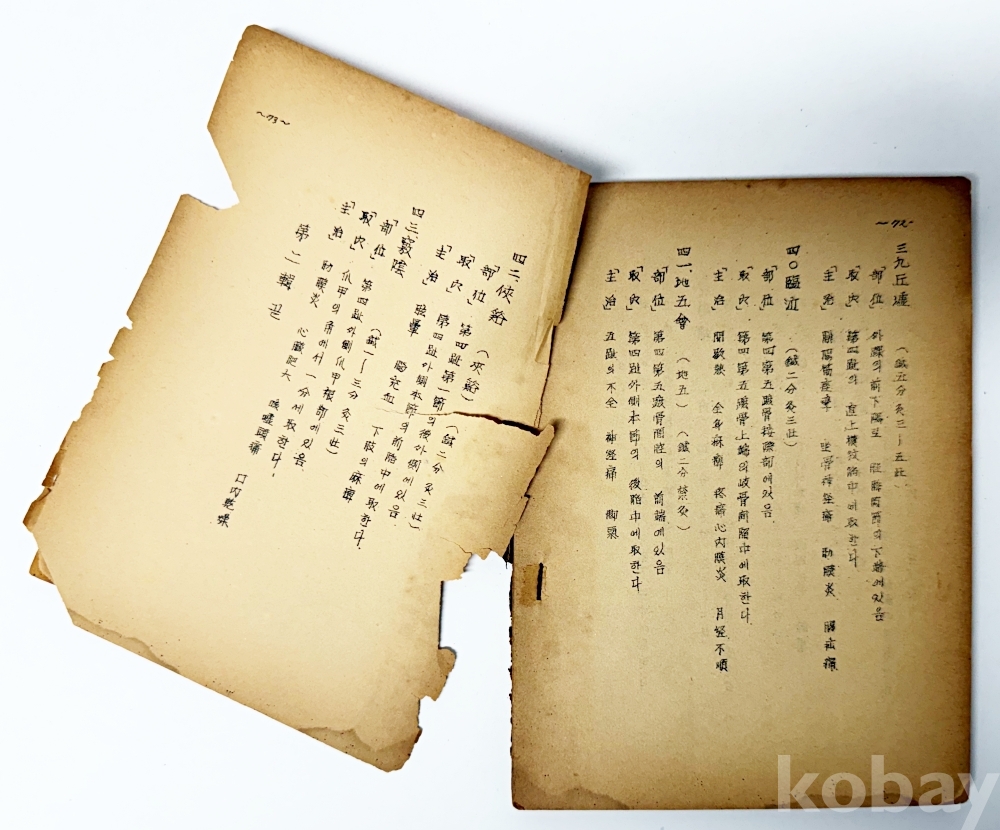 ~72~
三九 丘墟
(鍼五分灸三―五壮)
「部位」 外踝의 前下陽至 下端에있음
「取穴」 第四趾의 直上横紋筋中에取한다
「主治」 坐骨神経痛 肋膜炎
四〇 臨泣
(鍼二分灸三壮)
「部位」 第四第五蹠骨接際部에있음
「取穴」 第四第五蹠骨上端의岐骨間陷中에取한다
「主治」 間歇熱 全身麻痺 疼痛 心内膜炎 月経不順
四一 地五會
(地五) (鍼二分禁灸)
「部位」 第四第五蹠骨間腔의 前端에있음
「取穴」 第四趾外側本節의 後陷中에取한다
「主治」 五趾의不全 神経痛 脚氣
~73~
四二 俠谿
(夾谿) (鍼二分 灸三壮)
「部位」 第四趾第一節의後外側에있음
「取穴」 第四趾外側本節의前陷中에取한다.
「主治」 眩暈 脳充血 下肢의麻痺
四三 竅陰
(鍼一―三分 灸三壮)
「部位」 第四趾外側爪甲根部에있음
「取穴」 爪甲의角에서一分에取한다.
「主治」 肋膜炎 心臓肥大 咳嗽頭痛 口内乾燥
第二輯 끝
kobay